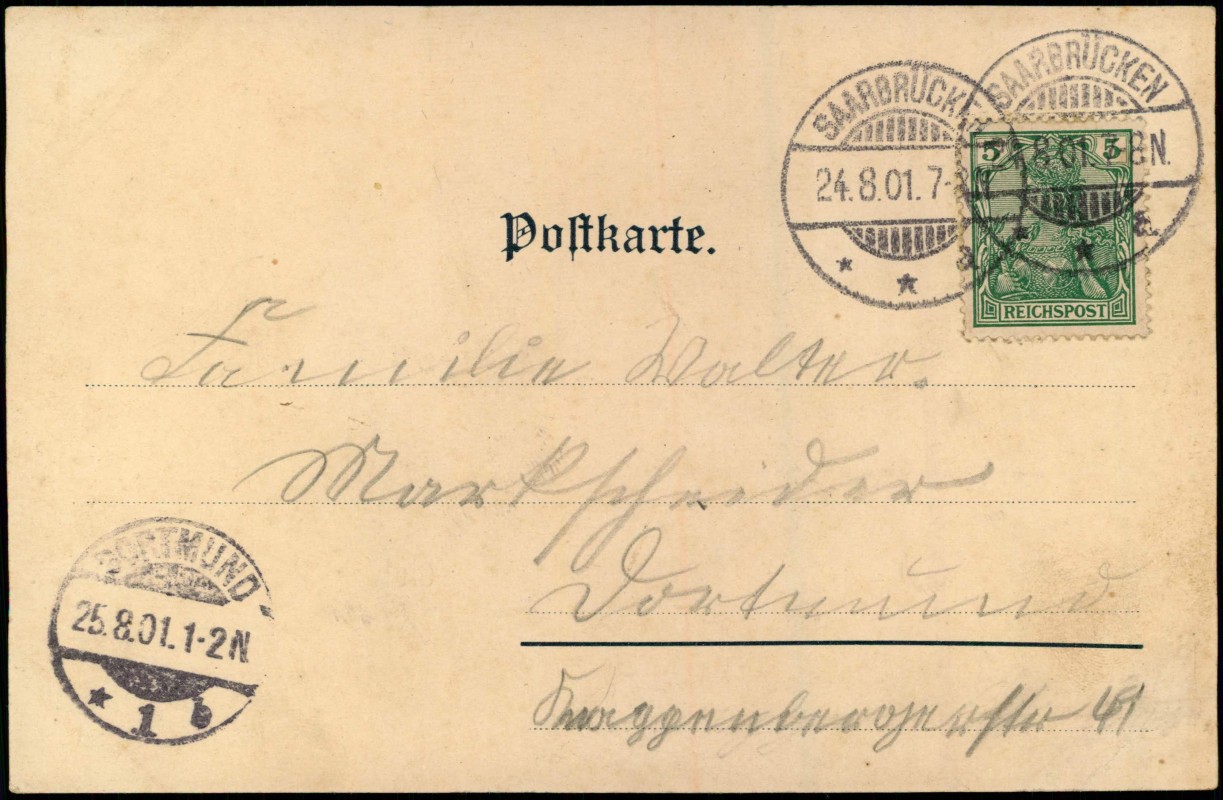 SAARBRÜCKEN
24.8.01.7-8N.
a.
SAARBRÜCKEN
24.8.01.7-8N.
a.
5 5
REICHSPOST
Postkarte.
Familie Walter.
Markscheider
Dortmund
Knappenbergerstr 41
DORTMUND
25.8.01.1-2N
1 b